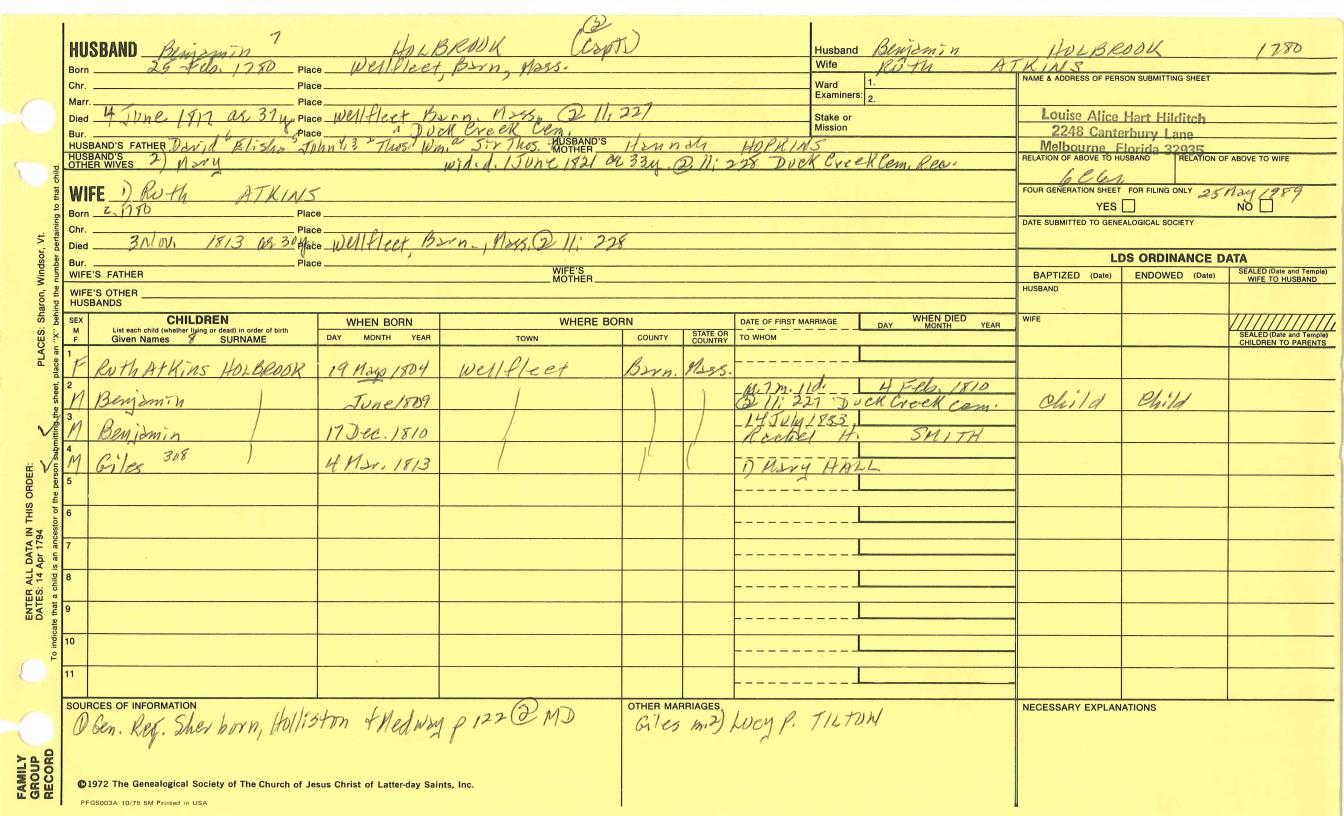 HUSBAND Benjamin 7 HOLBROOK (Capt) ②
Born 25 Feb. 1780 Place Wellfleet, Barn, Mass.
Chr. Place
Marr. Place
Died 4 June 1817 as 37y Place Wellfleet Barn. Mass. ② 11: 227
Bur. Place " Duck Creek Cem.
HUSBAND'S FATHER David 6 Elisha 5 John 4,3 2 Thos. Wm. Sir Thos. HUSBAND'S MOTHER Hannah HOPKINS
HUSBAND'S OTHER WIVES 2) Mary wid. d. 1 June 1821 as 33y. ② 11: 228 Duck Creek Cem. Rec.
Husband Benjamin HOLBROOK 1780
Wife Ruth ATKINS
Ward Examiners: 1.
2.
Stake or Mission
NAME & ADDRESS OF PERSON SUBMITTING SHEET
Louise Alice Hart Hilditch
2248 Canterbury Lane
Melbourne, Florida 32935
RELATION OF ABOVE TO HUSBAND RELATION OF ABOVE TO WIFE
FOUR GENERATION SHEET FOR FILING ONLY 25 May 1989
YES NO
DATE SUBMITTED TO GENEALOGICAL SOCIETY
WIFE 1) Ruth ATKINS
Born 1780 Place
Chr. Place
Died 3 Nov. 1813 as 30y Place Wellfleet, Barn., Mass. ② 11: 228
Bur. Place
WIFE'S FATHER WIFE'S MOTHER
WIFE'S OTHER HUSBANDS
LDS ORDINANCE DATA
BAPTIZED (Date) ENDOWED (Date) SEALED (Date and Temple) WIFE TO HUSBAND
HUSBAND
WIFE
SEALED (Date and Temple) CHILDREN TO PARENTS
SEX M F CHILDREN WHEN BORN WHERE BORN DATE OF FIRST MARRIAGE WHEN DIED
List each child (whether living or dead) in order of birth
Given Names 8 SURNAME DAY MONTH YEAR TOWN COUNTY STATE OR COUNTRY TO WHOM DAY MONTH YEAR
1 F Ruth Atkins HOLBROOK 19 May 1804 Wellfleet Barn. Mass.
2 M Benjamin June 1809 ae. 7m. 11d. 4 Feb. 1810
② 11: 227 Duck Creek Cem. Child Child
3 M Benjamin 17 Dec. 1810 14 July 1833
Rachel H. SMITH
4 M Giles 308 4 Mar. 1813 1) Mary HALL
5
6
7
8
9
10
11
SOURCES OF INFORMATION
① Gen. Reg. Sherborn, Holliston & Medway p 122 ② MD
OTHER MARRIAGES
Giles m. 2) Lucy P. TILTON
NECESSARY EXPLANATIONS
©1972 The Genealogical Society of The Church of Jesus Christ of Latter-day Saints, Inc.
PFGS003A 10/75 5M Printed in USA
FAMILY GROUP RECORD
ENTER ALL DATA IN THIS ORDER:
DATES: 14 Apr 1794
PLACES: Sharon, Windsor, Vt.
To indicate that a child is an ancestor of the person submitting the sheet, place an "X" behind the number pertaining to that child.